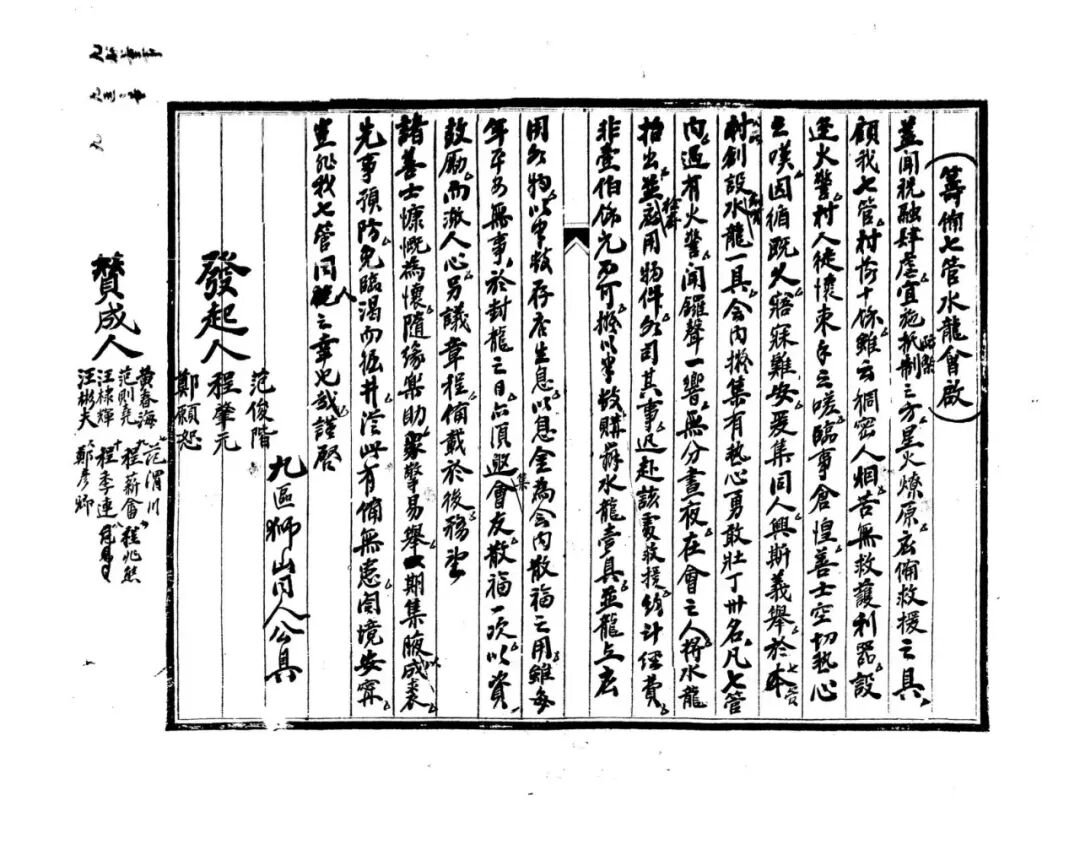 籌備七管水龍會啟
蓋聞祝融肆虐宜施抵制之方星火燎原宏備救援之具
顧我七管村落十餘雖云稠密人烟苦無救護利器設
逢火警村人徒懷束手之嗟臨事倉惶善士空切熱心
之嘆因循既久寤寐難安爰集同人興斯義舉於本七管
村創設水龍一具會內撥集有熱心勇敢壯丁卅名凡七管
內遇有火警聞鑼聲一響無分晝夜在會之人將水龍
抬出並應用物件各司其事迅赴該處救援統計經費
非壹伯餘元不可撥以半數購辦水龍壹具並龍上應
用各物以半數存店生息以息金為會內散福之用雖每
年平安無事於封龍之日亦須邀集會友散福一次以資
鼓勵而激人心另議章程備載於後務望
諸善士慷慨為懷隨緣樂助眾擎易舉期集腋以成裘
先事預防免臨渴而掘井從此有備無患閤境安甯
豈非我七管同人之幸也哉謹啓
九區獅山同人公具
發起人
范俊階
程肇元
鄭願恕
贊成人
黃春海
范則堯
汪祿輝
汪彬夫
范渭川
程薪會
程季連
鄭彥卿
程兆熊